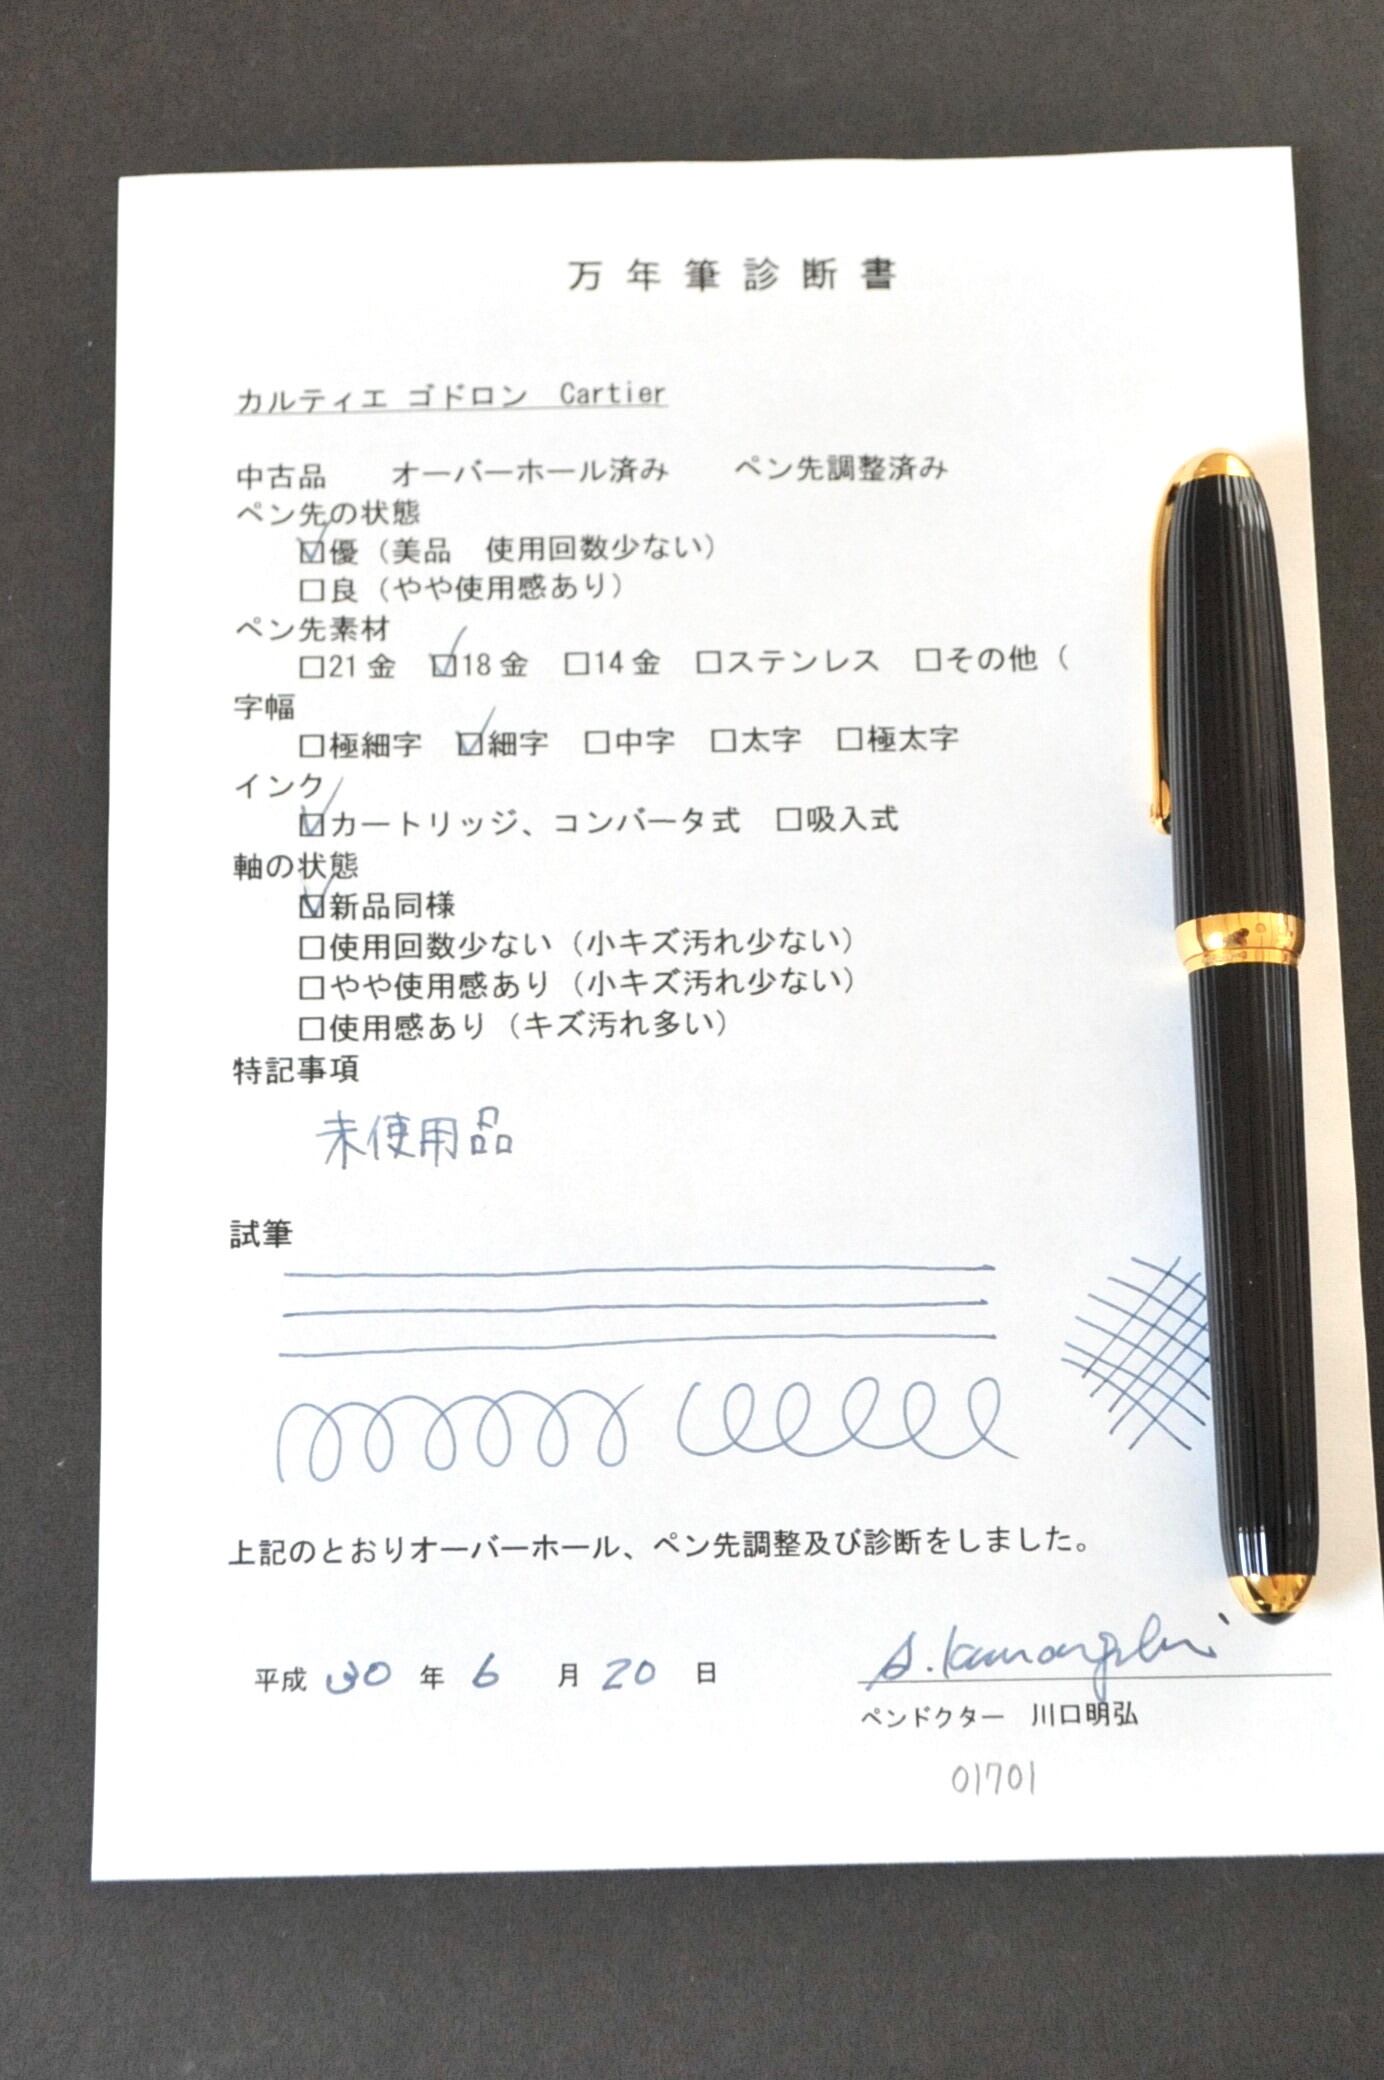 万年筆診断書
カルティエ ゴドロン　Cartier
中古品　　オーバーホール済み　　ペン先調整済み
ペン先の状態
☑優（美品　使用回数少ない）
□良（やや使用感あり）
ペン先素材
□21金　☑18金　□14金　□ステンレス　□その他（
字幅
□極細字　☑細字　□中字　□太字　□極太字
インク
☑カートリッジ、コンバータ式　□吸入式
軸の状態
☑新品同様
□使用回数少ない（小キズ汚れ少ない）
□やや使用感あり（小キズ汚れ少ない）
□使用感あり（キズ汚れ多い）
特記事項
未使用品
試筆
上記のとおりオーバーホール、ペン先調整及び診断をしました。
平成 30 年 6 月 20 日
A. Kawaguchi
ペンドクター　川口明弘
01701